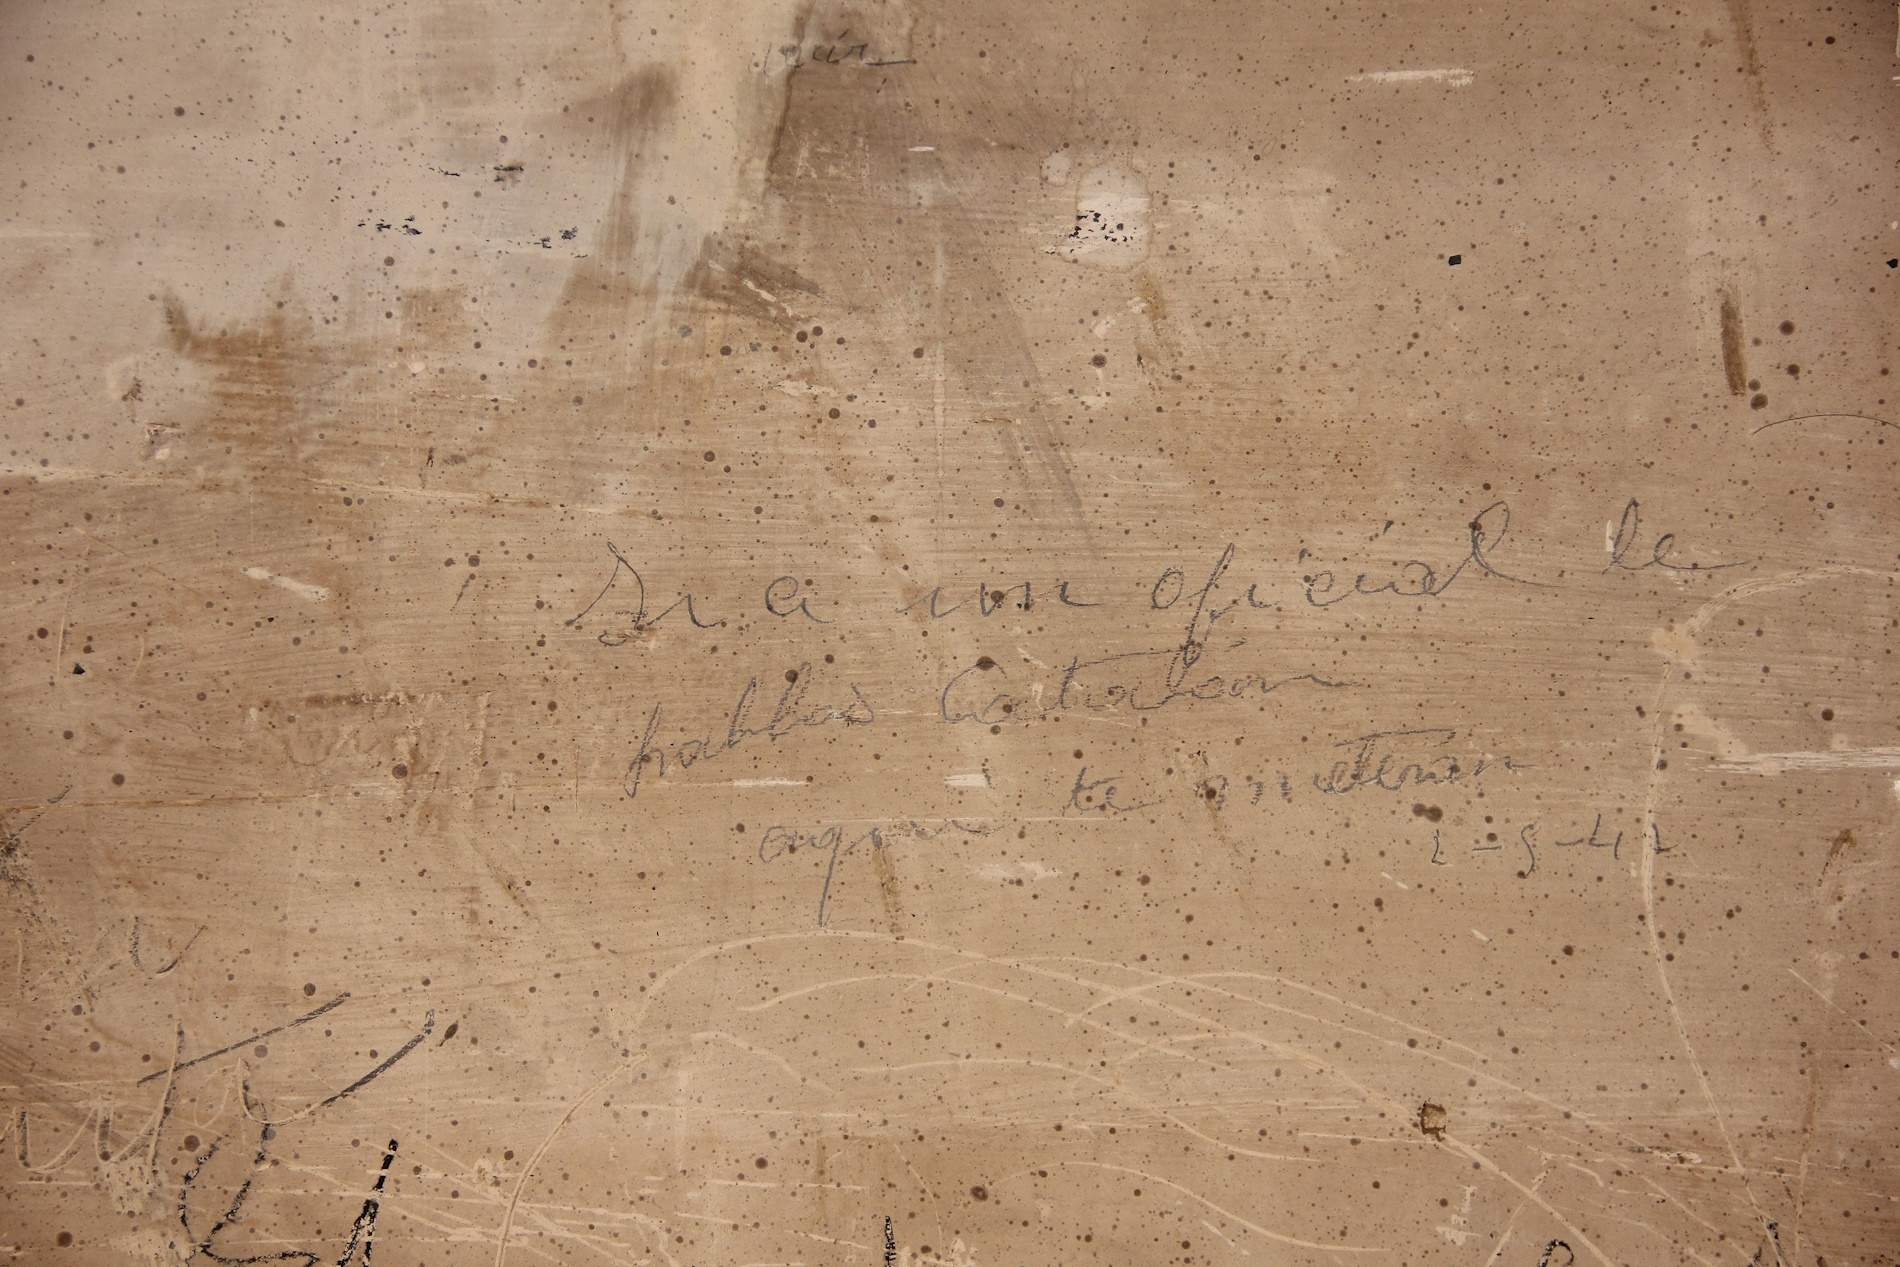 Si a un oficial le
hablas Catalán
aqui te meteran
2-9-42